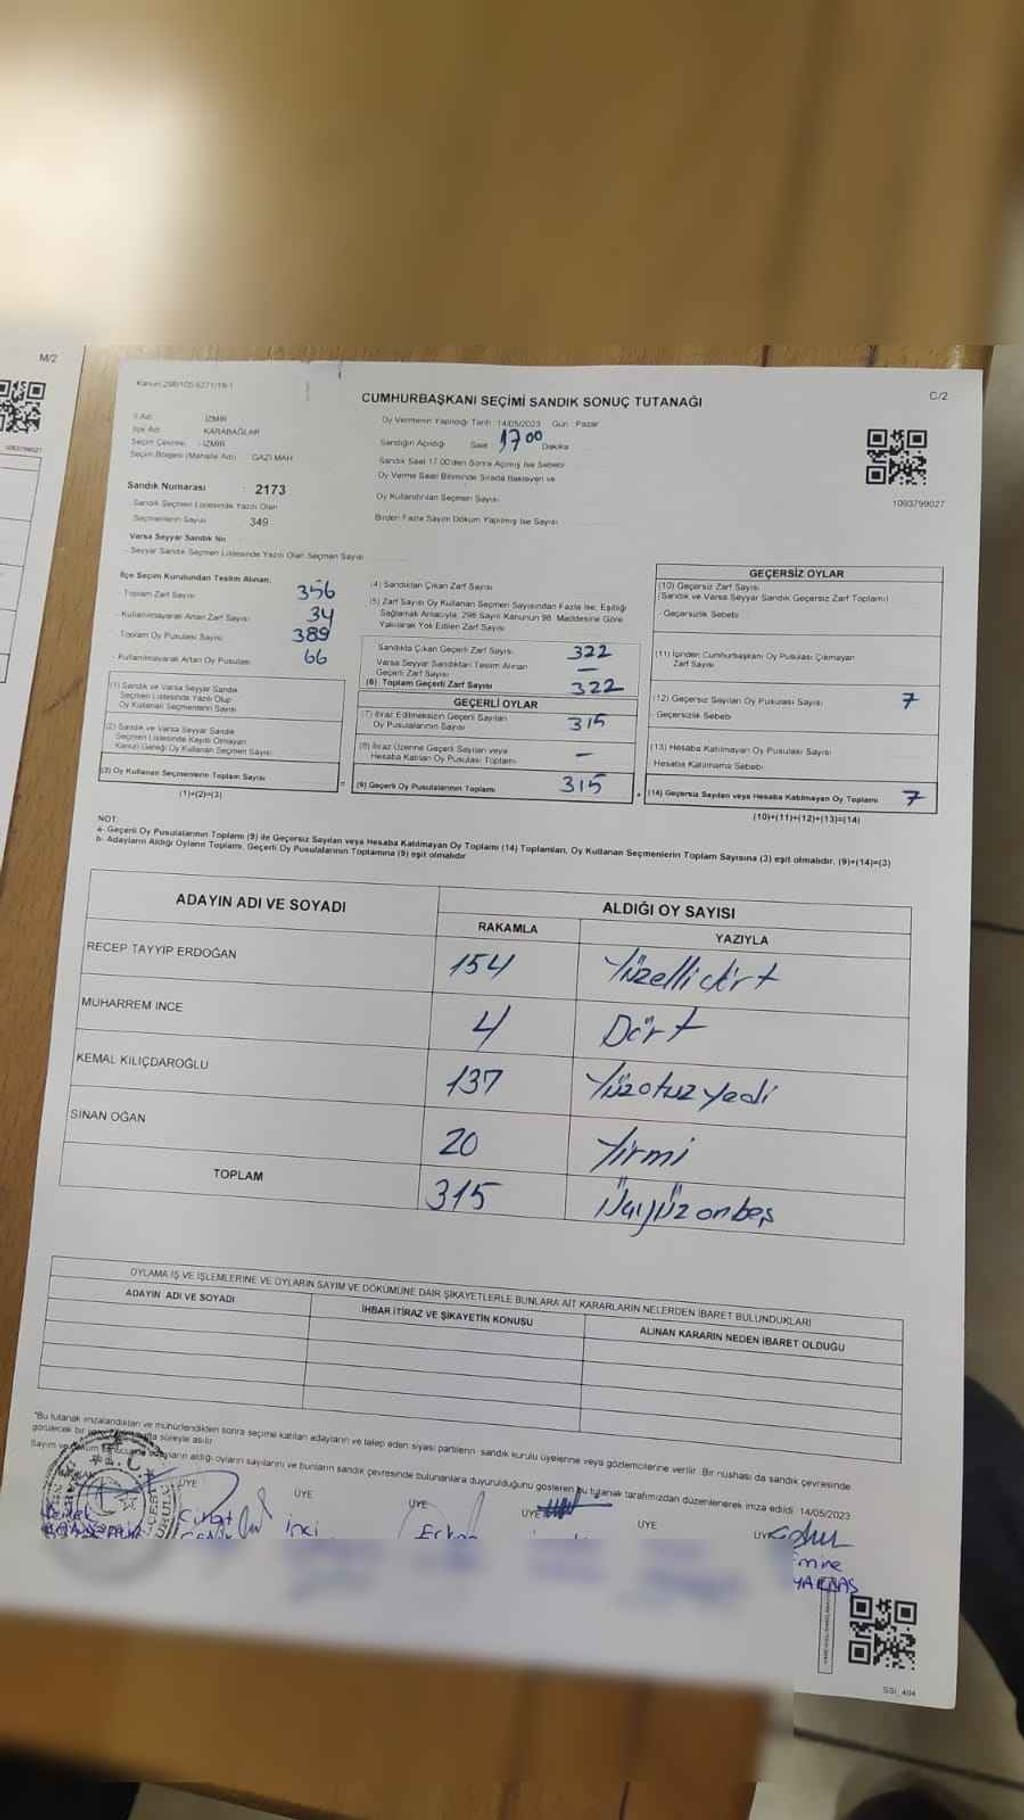 M/2
C/2
CUMHURBAŞKANI SEÇİMİ SANDIK SONUÇ TUTANAĞI
İl Adı : İZMİR
İlçe Adı : KARABAĞLAR
Seçim Çevresi : İZMİR
Seçim Bölgesi (Mahalle Adı) GAZİ MAH
Sandık Numarası : 2173
Sandık Seçmen Listesinde Yazılı Olan
Seçmenlerin Sayısı : 349
Varsa Seyyar Sandık No
- Seyyar Sandık Seçmen Listesinde Yazılı Olan Seçmen Sayısı
Oy Vermenin Yapıldığı Tarih : 14/05/2023 Gün : Pazar
Sandığın Açıldığı Saat : 17 00 Dakika
Sandık Saat 17.00'den Sonra Açılmış İse Sebebi
Oy Verme Saati Bitiminde Sırada Bekleyen ve
Oy Kullandırılan Seçmen Sayısı
Birden Fazla Sayım Döküm Yapılmış İse Sayısı
1093799027
İlçe Seçim Kurulundan Teslim Alınan:
- Toplam Zarf Sayısı 356
- Kullanılmayarak Artan Zarf Sayısı 34
- Toplam Oy Pusulası Sayısı 389
- Kullanılmayarak Artan Oy Pusulası 66
(1) Sandık ve Varsa Seyyar Sandık
Seçmen Listesinde Yazılı Olup
Oy Kullanan Seçmenlerin Sayısı
(2) Sandık ve Varsa Seyyar Sandık
Seçmen Listesinde Kayıtlı Olmayan
Kanun Gereği Oy Kullanan Seçmen Sayısı
(3) Oy Kullanan Seçmenlerin Toplam Sayısı
(1)+(2)=(3)
(4) Sandıktan Çıkan Zarf Sayısı
(5) Zarf Sayısı Oy Kullanan Seçmen Sayısından Fazla İse, Eşitliği
Sağlamak Amacıyla, 298 Sayılı Kanunun 98. Maddesine Göre
Yakılarak Yok Edilen Zarf Sayısı
Sandıkta Çıkan Geçerli Zarf Sayısı 322
Varsa Seyyar Sandıktan Teslim Alınan
Geçerli Zarf Sayısı —
(6) Toplam Geçerli Zarf Sayısı 322
GEÇERLİ OYLAR
(7) İtiraz Edilmeksizin Geçerli Sayılan
Oy Pusulalarının Sayısı 315
(8) İtiraz Üzerine Geçerli Sayılan veya
Hesaba Katılan Oy Pusulası Toplamı —
(9) Geçerli Oy Pusulalarının Toplamı 315
GEÇERSİZ OYLAR
(10) Geçersiz Zarf Sayısı
(Sandık ve Varsa Seyyar Sandık Geçersiz Zarf Toplamı)
- Geçersizlik Sebebi
(11) İçinden Cumhurbaşkanı Oy Pusulası Çıkmayan
Zarf Sayısı
(12) Geçersiz Sayılan Oy Pusulası Sayısı 7
- Geçersizlik Sebebi
(13) Hesaba Katılmayan Oy Pusulası Sayısı
Hesaba Katılmama Sebebi
(14) Geçersiz Sayılan veya Hesaba Katılmayan Oy Toplamı 7
(10)+(11)+(12)+(13)=(14)
NOT:
a- Geçerli Oy Pusulalarının Toplamı (9) ile Geçersiz Sayılan veya Hesaba Katılmayan Oy Toplamı (14) Toplamları, Oy Kullanan Seçmenlerin Toplam Sayısına (3) eşit olmalıdır. (9)+(14)=(3)
b- Adayların Aldığı Oyların Toplamı, Geçerli Oy Pusulalarının Toplamına (9) eşit olmalıdır
ADAYIN ADI VE SOYADI ALDIĞI OY SAYISI
RAKAMLA YAZIYLA
RECEP TAYYİP ERDOĞAN 154 Yüzellidört
MUHARREM İNCE 4 Dört
KEMAL KILIÇDAROĞLU 137 Yüzotuzyedi
SİNAN OĞAN 20 Yirmi
TOPLAM 315 Üçyüzonbeş
OYLAMA İŞ VE İŞLEMLERİNE VE OYLARIN SAYIM VE DÖKÜMÜNE DAİR ŞİKAYETLERLE BUNLARA AİT KARARLARIN NELERDEN İBARET BULUNDUKLARI
ADAYIN ADI VE SOYADI İHBAR İTİRAZ VE ŞİKAYETİN KONUSU ALINAN KARARIN NEDEN İBARET OLDUĞU
"Bu tutanak imzalandıktan ve mühürlendikten sonra seçime katılan adayların ve talep eden siyasi partilerin sandık kurulu üyelerine veya gözlemcilerine verilir. Bir nüshası da sandık çevresinde
aldığı oyların sayılarını ve bunların sandık çevresinde bulunanlara duyurulduğunu gösteren bu tutanak tarafımızdan düzenlenerek imza edildi. 14/05/2023
ÜYE ÜYE ÜYE ÜYE ÜYE ÜYE
İnci
Emine
SSI_404